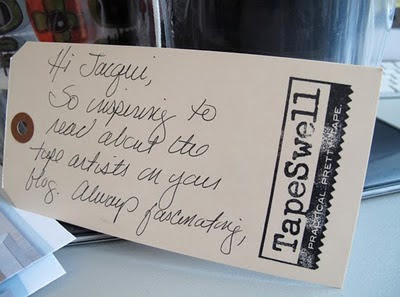 Hi Jacqui,
So inspiring to
read about the
tape artists on your
blog. Always fascinating,
TapeSwell
PRACTICAL. PRETTY. TAPE.